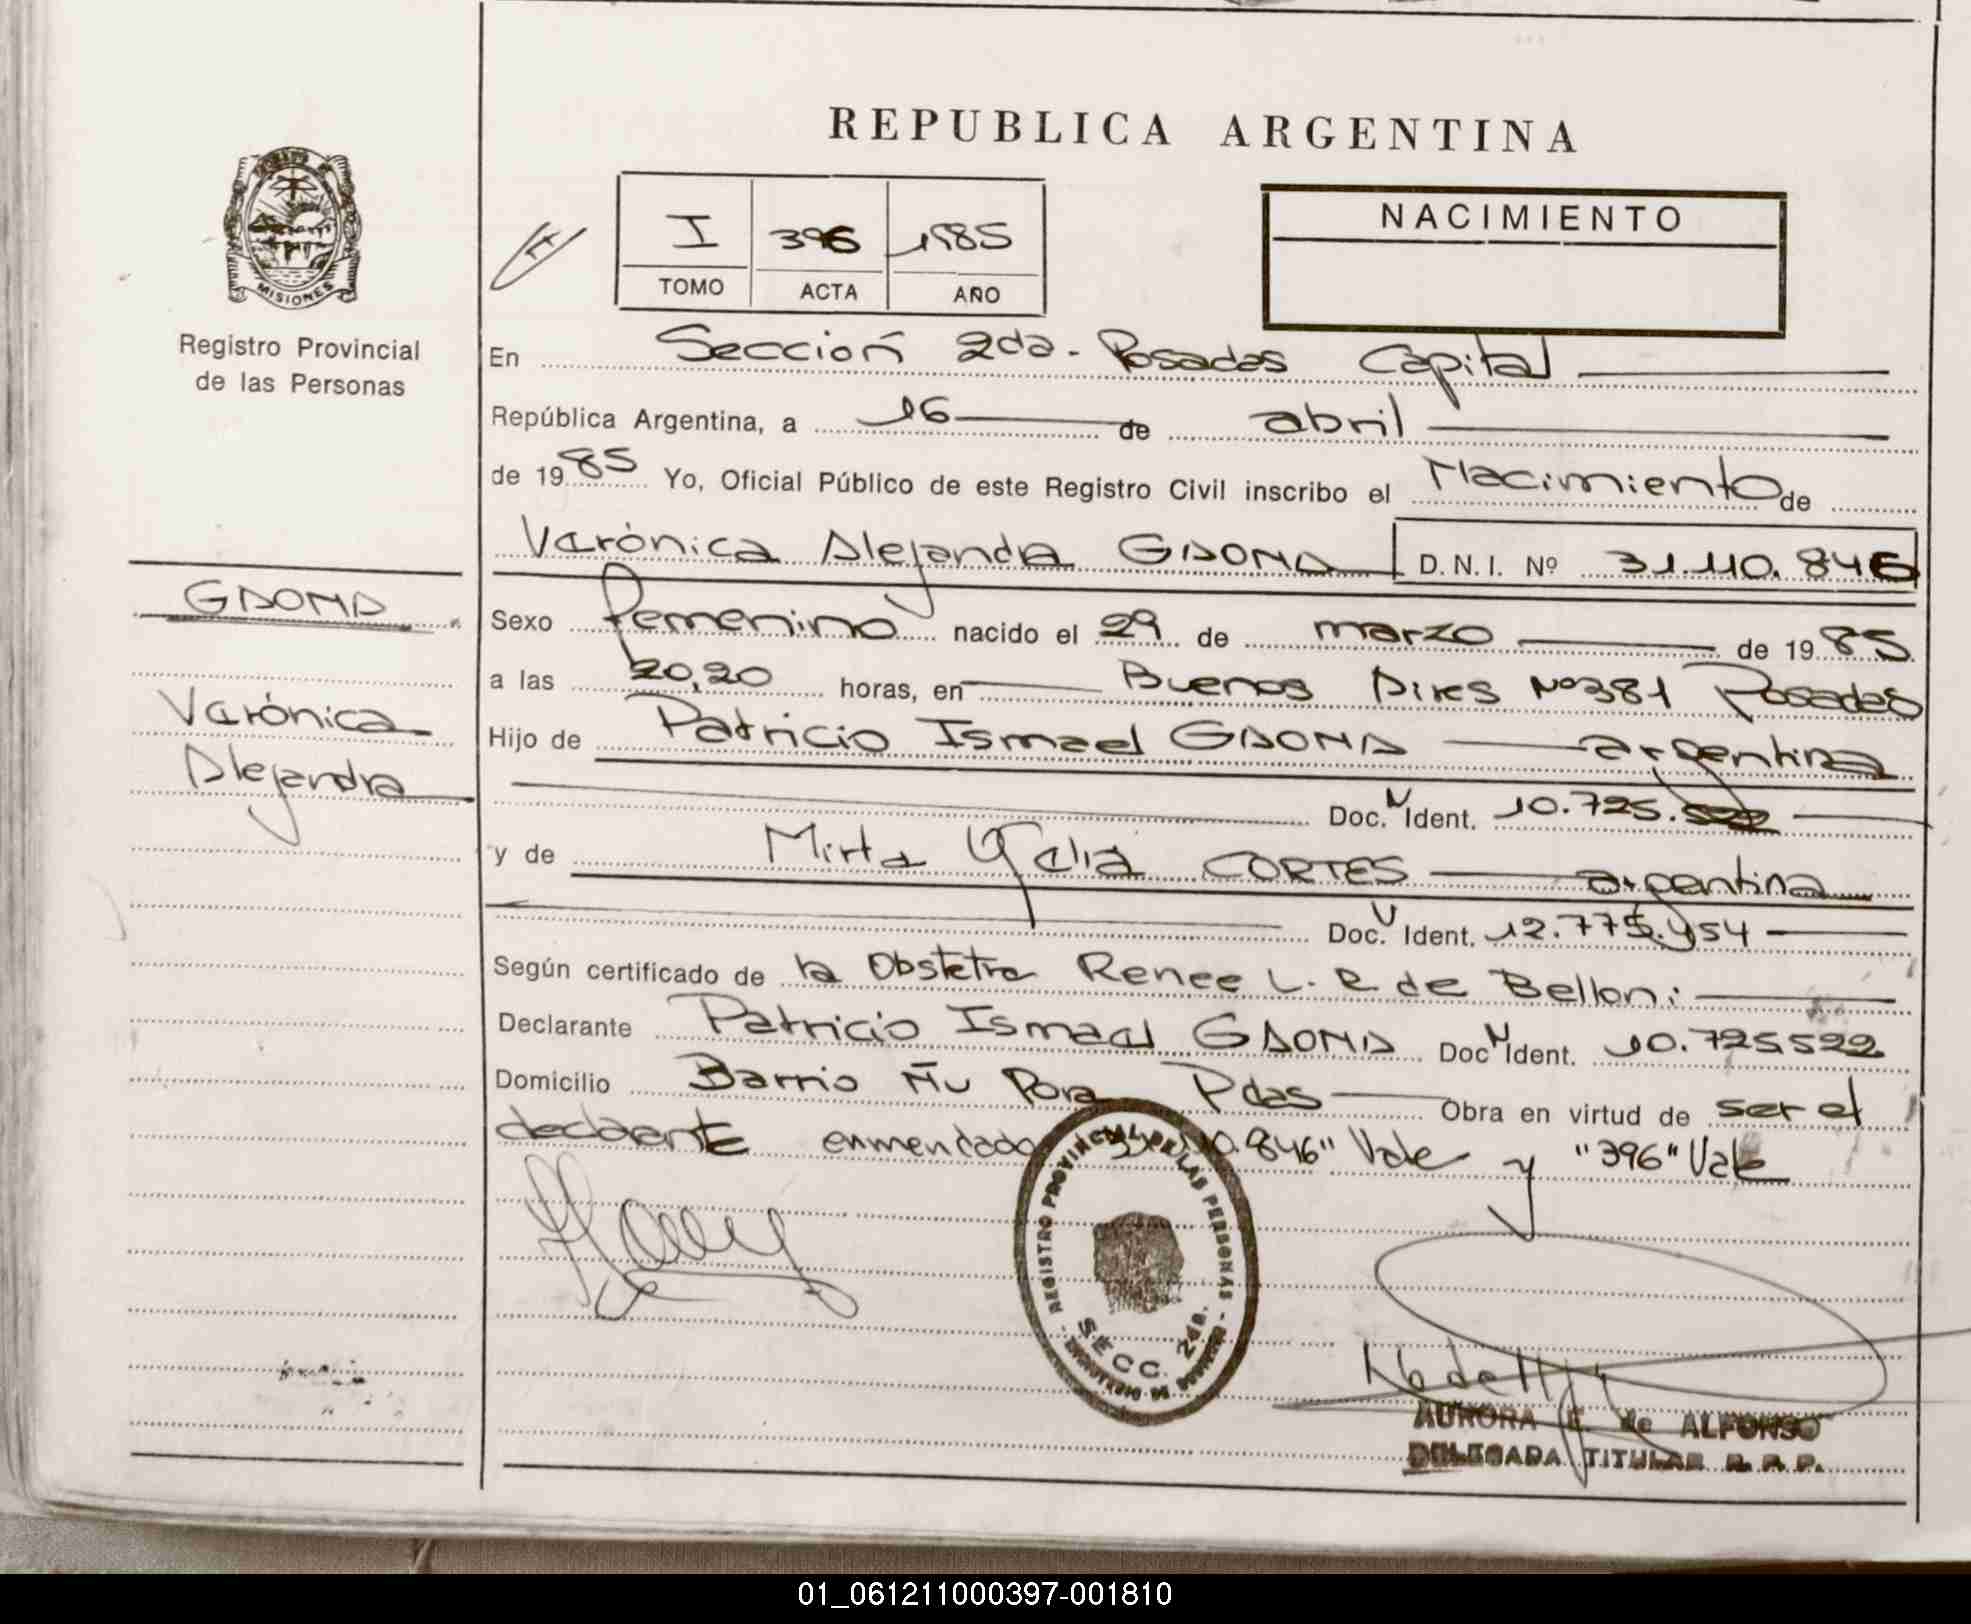 REPUBLICA ARGENTINA
MISIONES
Registro Provincial
de las Personas
I 396 1985
TOMO ACTA AÑO
NACIMIENTO
En Sección 2da. Posadas Capital
República Argentina, a 16 de abril
de 1985 Yo, Oficial Público de este Registro Civil inscribo el Nacimiento de
Verónica Alejandra GAONA D.N.I. Nº 31.110.846
GAONA
Verónica
Alejandra
Sexo Femenino nacido el 29 de marzo de 1985
a las 20,20 horas, en Buenos Aires Nº 381 Posadas
Hijo de Patricio Ismael GAONA argentina
Doc. N Ident. 10.725.522
y de Mirta CORTES argentina
Doc. Ident. 12.775.454
Según certificado de la Obstetra Renee L. R de Belloni
Declarante Patricio Ismael GAONA Doc N Ident. 10.725522
Domicilio Barrio Ñu Pora Pdas Obra en virtud de ser el
declarante enmendado 0.846" Vale y "396" Vale
REGISTRO PROVINCIAL DE LAS PERSONAS
SECC. 2da.
AURORA E. de ALFONSO
DELEGADA TITULAR R. P. P.
01_061211000397-001810